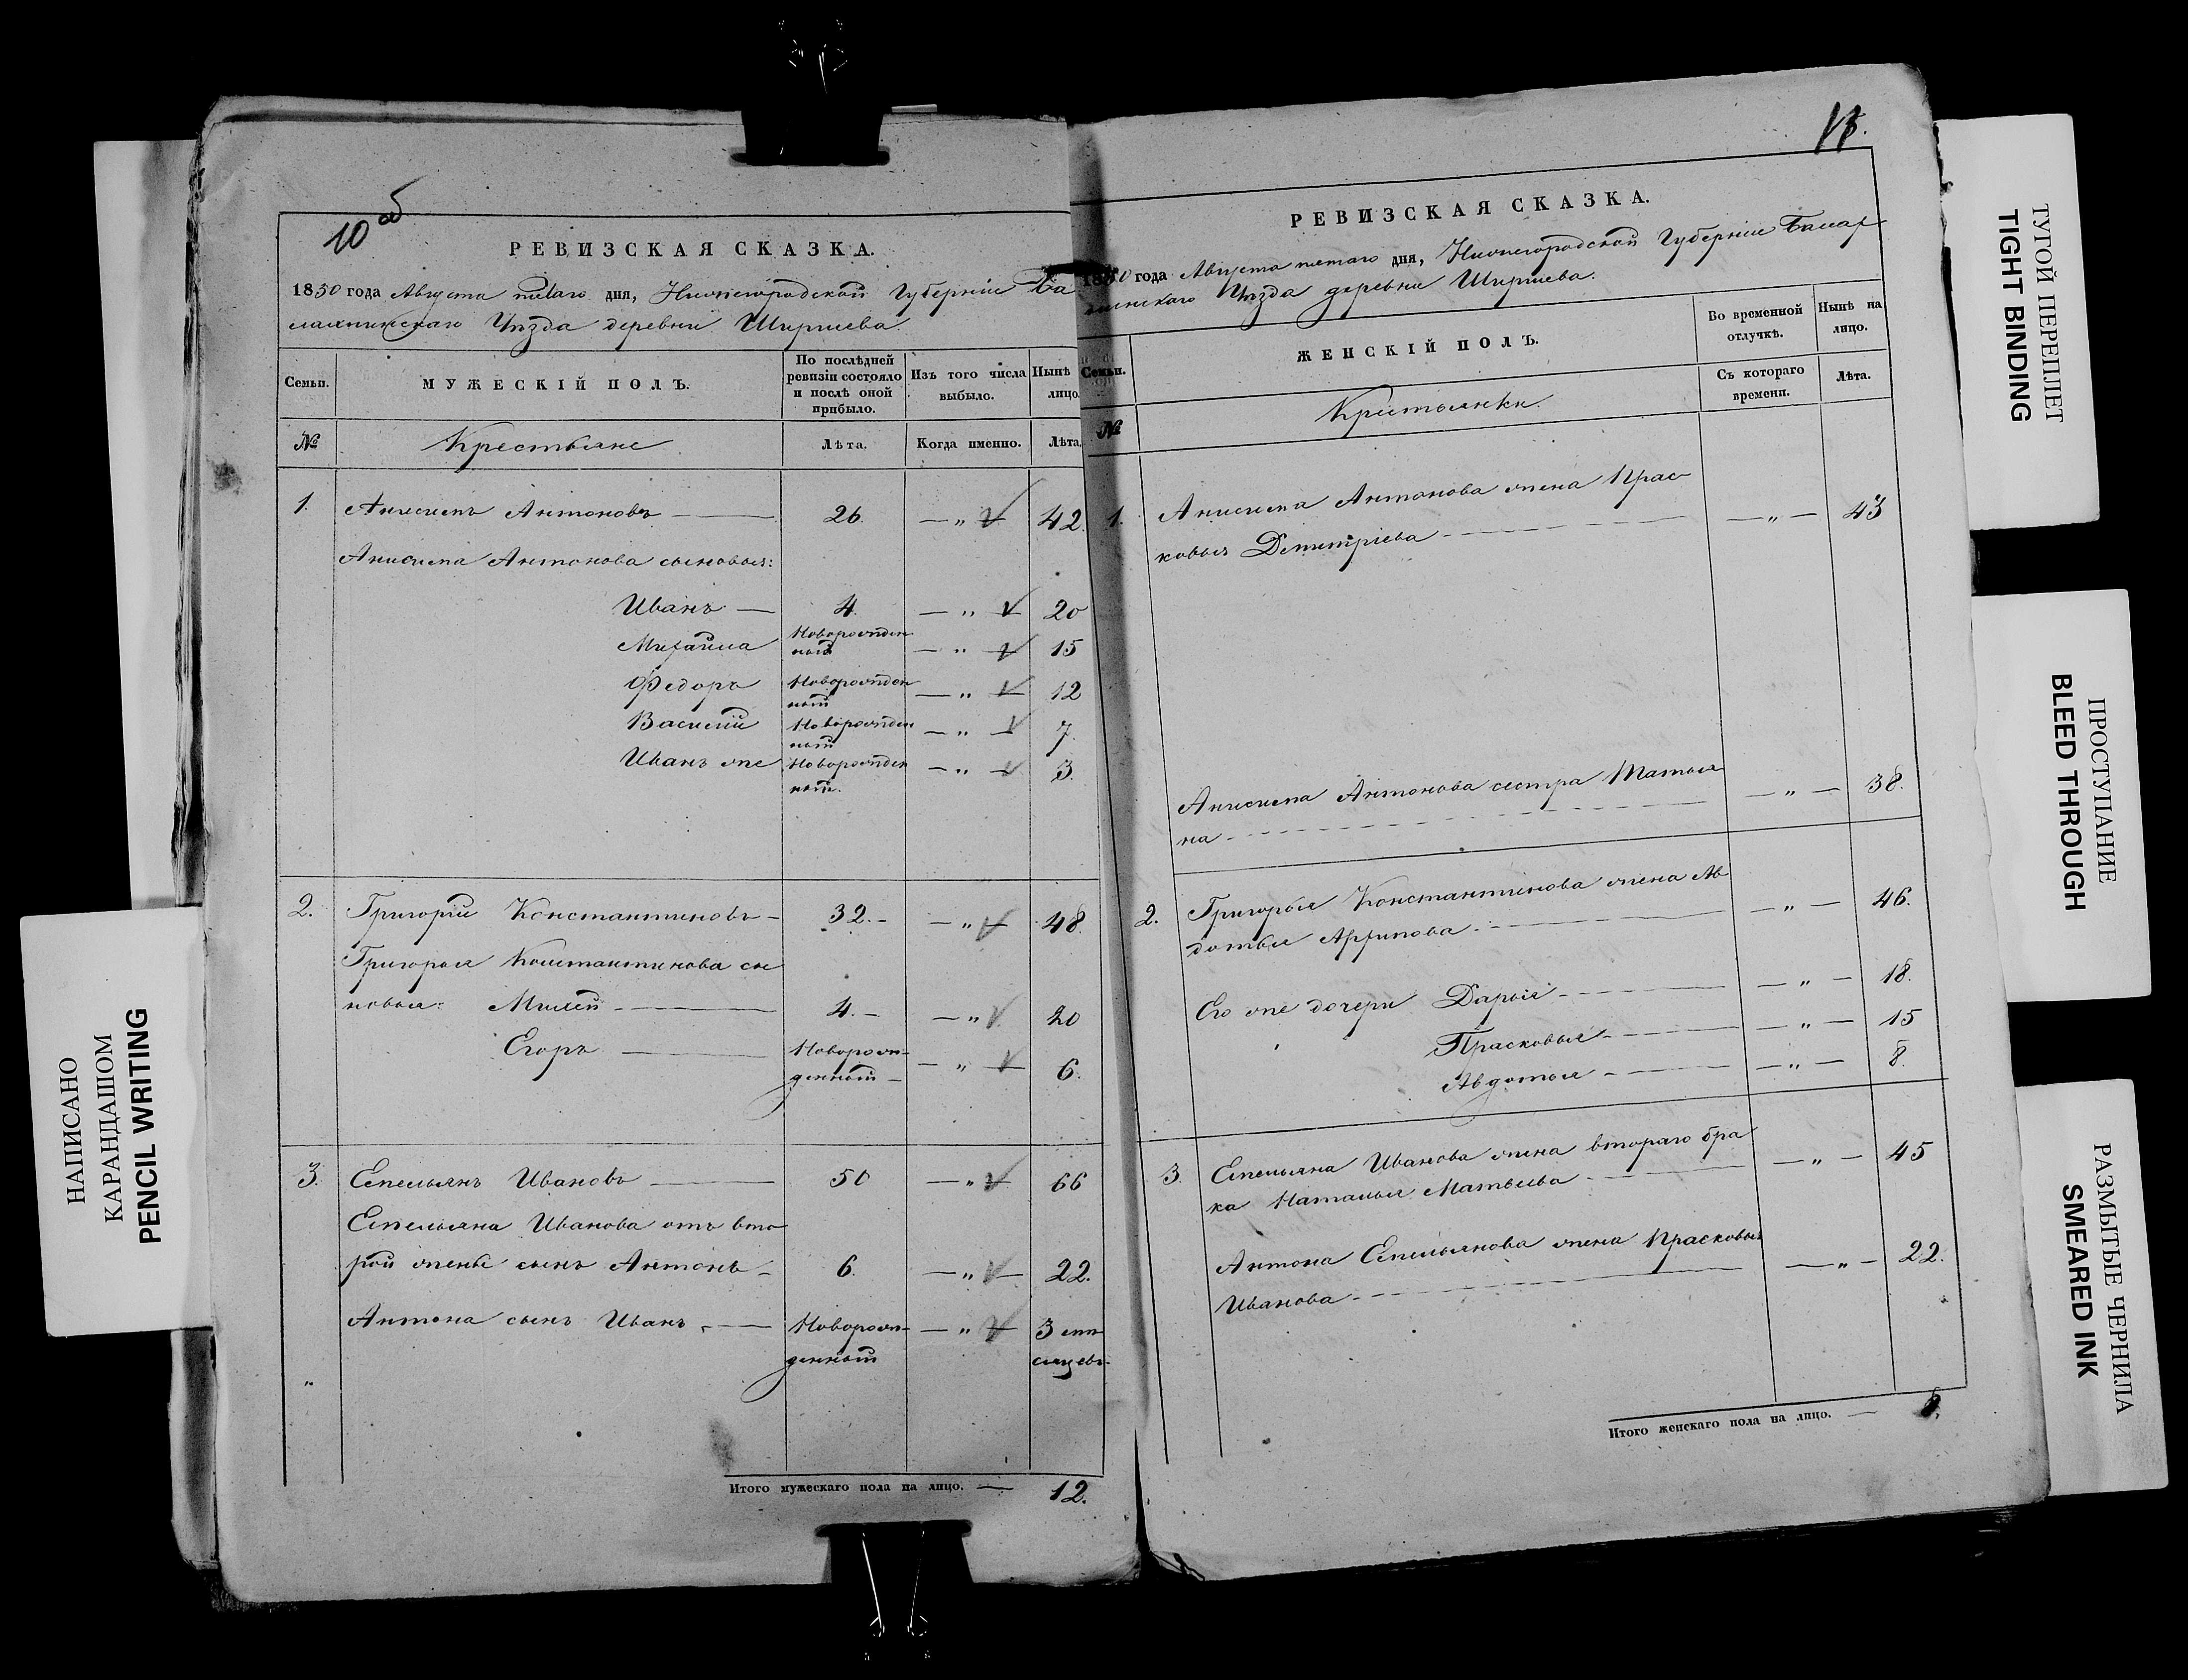 10 об
РЕВИЗСКАЯ СКАЗКА.
1850 года Августа пятаго дня, Нижегородской Губерніи Ба
лахнинскаго Уѣзда деревни Ширшева.
Семьи.
МУЖЕСКІЙ ПОЛЪ.
По послѣдней ревизіи состояло и послѣ оной прибыло.
Изъ того числа выбыло.
Нынѣ лицо.
№
Крестьяне
Лѣта.
Когда именно.
Лѣта.
1. Анисимъ Антоновъ — 26. — „ — 42.
Анисима Антонова сыновья:
Иванъ — 4. — „ — 20
Михайла Новорожден ный — „ — 15
Федоръ Новорожден ный — „ — 12
Василій Новорожден ный — „ — 7.
Иванъ же Новорожден ный. — „ — 3.
2. Григорій Константиновъ — 32. — — „ — 48.
Григорья Константинова сы
новья: Михей — 4. — — „ 20
Егоръ — Новорож- — „ — 6.
денный —
3. Емельянъ Ивановъ — 50 — „ — 66
Емельяна Иванова отъ вто
рой жены сынъ Антонъ — 6. — „ — 22.
Антона сынъ Иванъ. — Новорож- — „ — 3 мѣ
денный сяцевъ.
„
Итого мужескаго пола на лицо. — 12.
11.
РЕВИЗСКАЯ СКАЗКА.
1850 года Августа пятаго дня, Нижегородской Губерніи Балах
нинскаго Уѣзда деревни Ширшева.
Семьи.
ЖЕНСКІЙ ПОЛЪ.
Во временной отлучкѣ.
Нынѣ на лицо.
№
Крестьянки.
Съ котораго времени.
Лѣта.
1. Анисима Антонова жена Прас-
ковья Демитріева — — „ — 43
Анисима Антонова сестра Татья — „ — 38.
на —
2. Григорья Константинова жена Ав
дотья Архипова — — „ — 46.
Его же дочери Дарья — — „ — 18.
Прасковья — — „ — 15
Авдотья — — „ — 8.
3. Емельяна Иванова жена втораго бра
ка Наталья Матвѣева — — „ — 45
Антона Емельянова жена Прасковья
Иванова — — „ — 22.
Итого женскаго пола на лицо. — 8.
НАПИСАНО
КАРАНДАШОМ
PENCIL WRITING
ТУГОЙ ПЕРЕПЛЕТ
TIGHT BINDING
ПРОСТУПАНИЕ
BLED THROUGH
РАЗМЫТЫЕ ЧЕРНИЛА
SMEARED INK